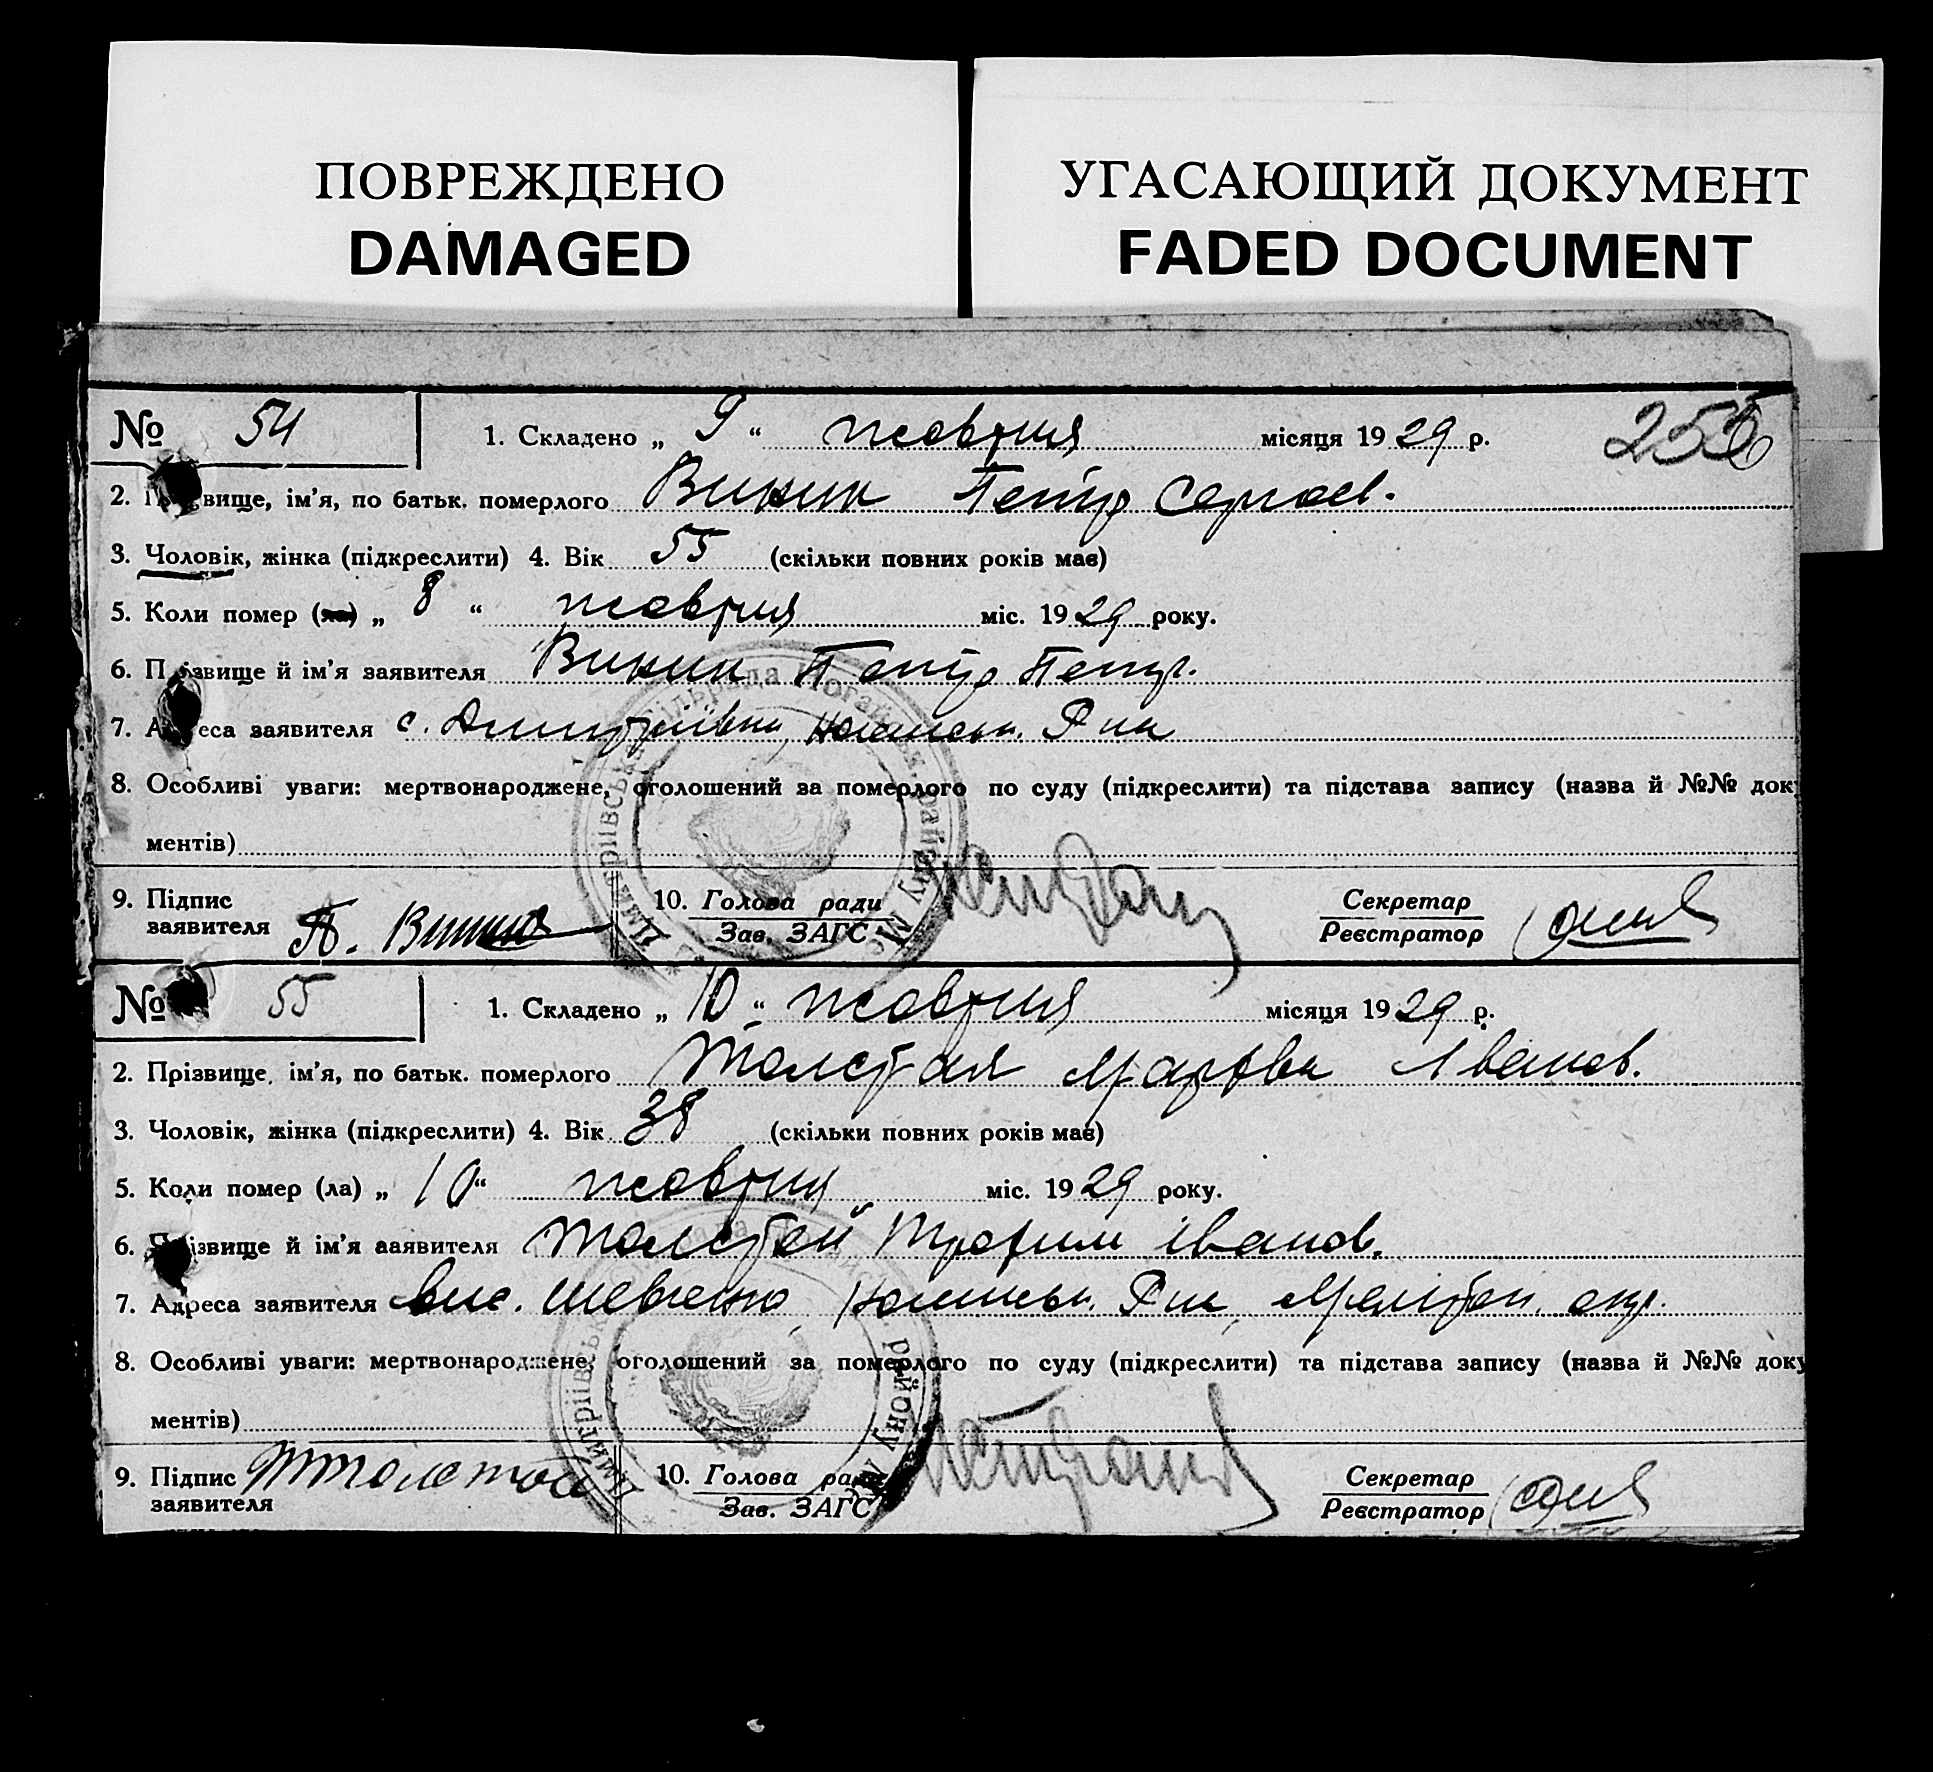 ПОВРЕЖДЕНО
DAMAGED
УГАСАЮЩИЙ ДОКУМЕНТ
FADED DOCUMENT
№ 54 1. Складено „ 9 “ жовтня місяця 19 29 р.
2. вище, ім’я, по батьк. померлого Винник Петр Сергеев.
3. Чоловік, жінка (підкреслити) 4. Вік 55 (скільки повних років має)
5. Коли помер (ла) „ 8 “ жовтня міс. 19 29 року.
6. Прізвище й ім’я заявителя Петр Петр.
7. Адреса заявителя с. Дмитріівка, Р
8. Особливі уваги: мертвонароджене, оголошений за померлого по суду (підкреслити) та підстава запису (назва й №№ доку
ментів)
9. Підпис заявителя П. 10. Голова ради Секретар
Зав. ЗАГС Реєстратор
№ 55 1. Складено „ 10 “ жовтня місяця 19 29 р.
2. Прізвище, ім’я, по батьк. померлого Толстая Марфа Іванов.
3. Чоловік, жінка (підкреслити) 4. Вік 38 (скільки повних років має)
5. Коли помер (ла) „ 10 “ жовтня міс. 19 29 року.
6. Прізвище й ім’я заявителя Толстой Трофим Іванов.
7. Адреса заявителя вис. Шевченко, Р Мелітоп. окр.
8. Особливі уваги: мертвонароджене, оголошений за померлого по суду (підкреслити) та підстава запису (назва й №№ доку
ментів)
9. Підпис заявителя Толстой 10. Голова ради Секретар
Зав. ЗАГС Реєстратор